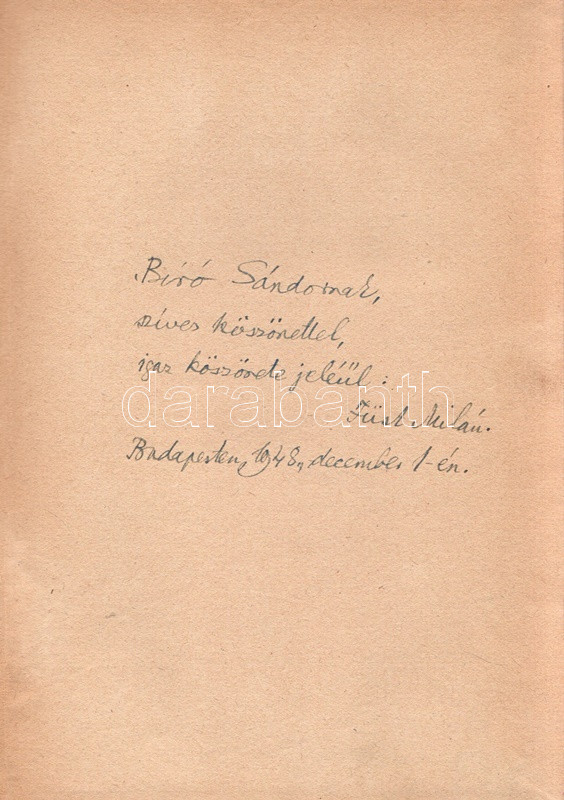 Bíró Sándornak,
szíves köszönettel,
igaz köszönete jeléül:
darabanth
Füst Milán.
Budapesten, 1948, december 1-én.